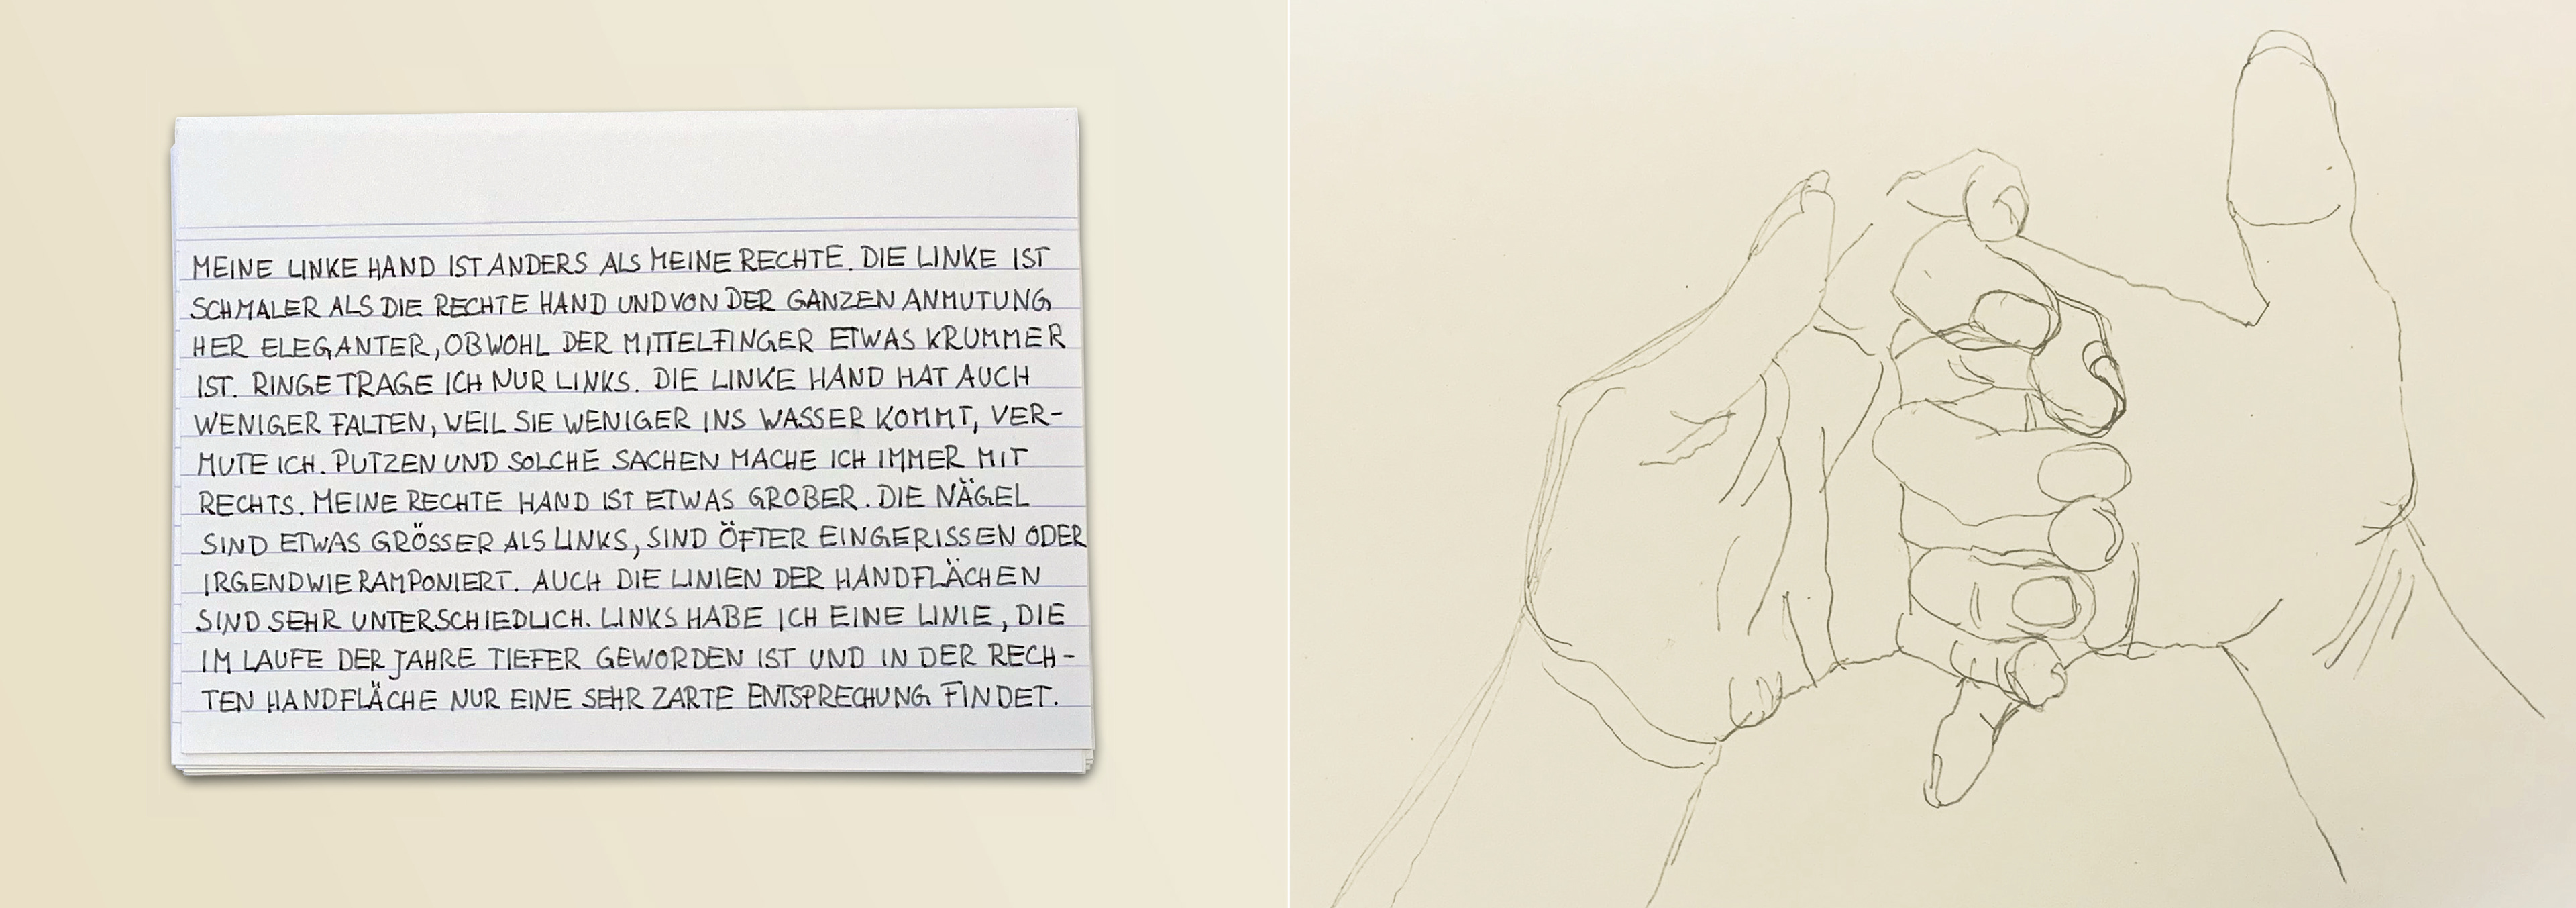 MEINE LINKE HAND IST ANDERS ALS MEINE RECHTE. DIE LINKE IST
SCHMALER ALS DIE RECHTE HAND UND VON DER GANZEN ANMUTUNG
HER ELEGANTER, OBWOHL DER MITTELFINGER ETWAS KRUMMER
IST. RINGE TRAGE ICH NUR LINKS. DIE LINKE HAND HAT AUCH
WENIGER FALTEN, WEIL SIE WENIGER INS WASSER KOMMT, VER-
MUTE ICH. PUTZEN UND SOLCHE SACHEN MACHE ICH IMMER MIT
RECHTS. MEINE RECHTE HAND IST ETWAS GROBER. DIE NÄGEL
SIND ETWAS GRÖSSER ALS LINKS, SIND ÖFTER EINGERISSEN ODER
IRGENDWIE RAMPONIERT. AUCH DIE LINIEN DER HANDFLÄCHEN
SIND SEHR UNTERSCHIEDLICH. LINKS HABE ICH EINE LINIE, DIE
IM LAUFE DER JAHRE TIEFER GEWORDEN IST UND IN DER RECH-
TEN HANDFLÄCHE NUR EINE SEHR ZARTE ENTSPRECHUNG FINDET.